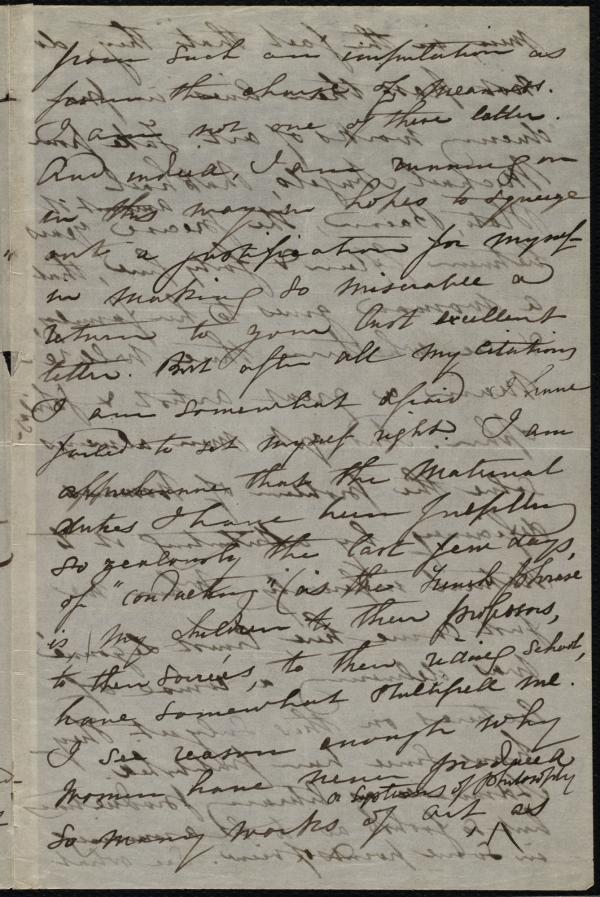 from such an imputation as
from the charge of meanness.
I am not one of these latter.
And indeed, I am running on
in this way in hopes to squeeze
out a justification for myself
in making so miserable a
return to your last excellent
letter. But after all my citations
I am somewhat afraid I have
failed to set myself right. I am
apprehensive that the maternal
duties I have been fulfilling
so zealously the last few days,
of "conducting" (as the French phrase
is) my children to their professors,
to their soirées, to their riding school,
have somewhat stultified me.
I see reason enough why
women have never produced
a systems of philosophy
so many works of art as